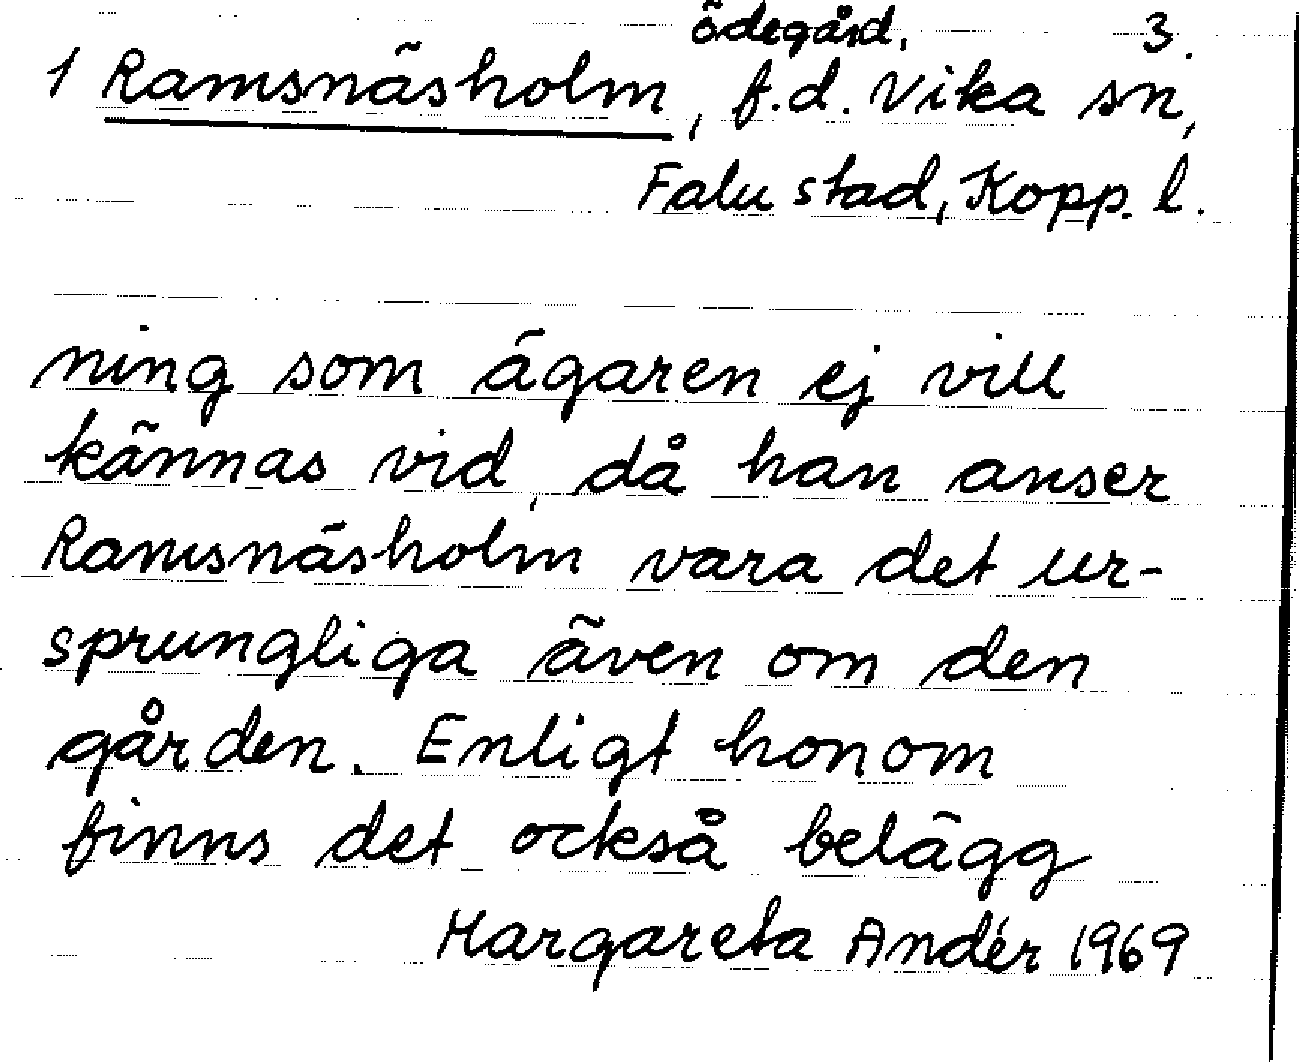 ödegård, 3.
1 Ramsnäsholm, f.d. Vika sn,
Falu stad, Kopp. l.
ning som ägaren ej vill
kännas vid, då han anser
Ramsnäsholm vara det ur-
sprungliga även om den
gården. Enligt honom
finns det också belägg
Margareta Andér 1969